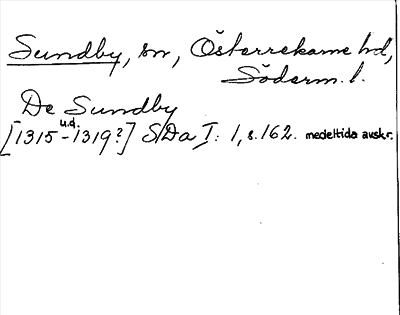 Sundby, sn, Österrekarne hd,
Söderm. l.
De Sundby
[1315 u.d. -1319?] SDa I: 1, s. 162. medeltida avskr.